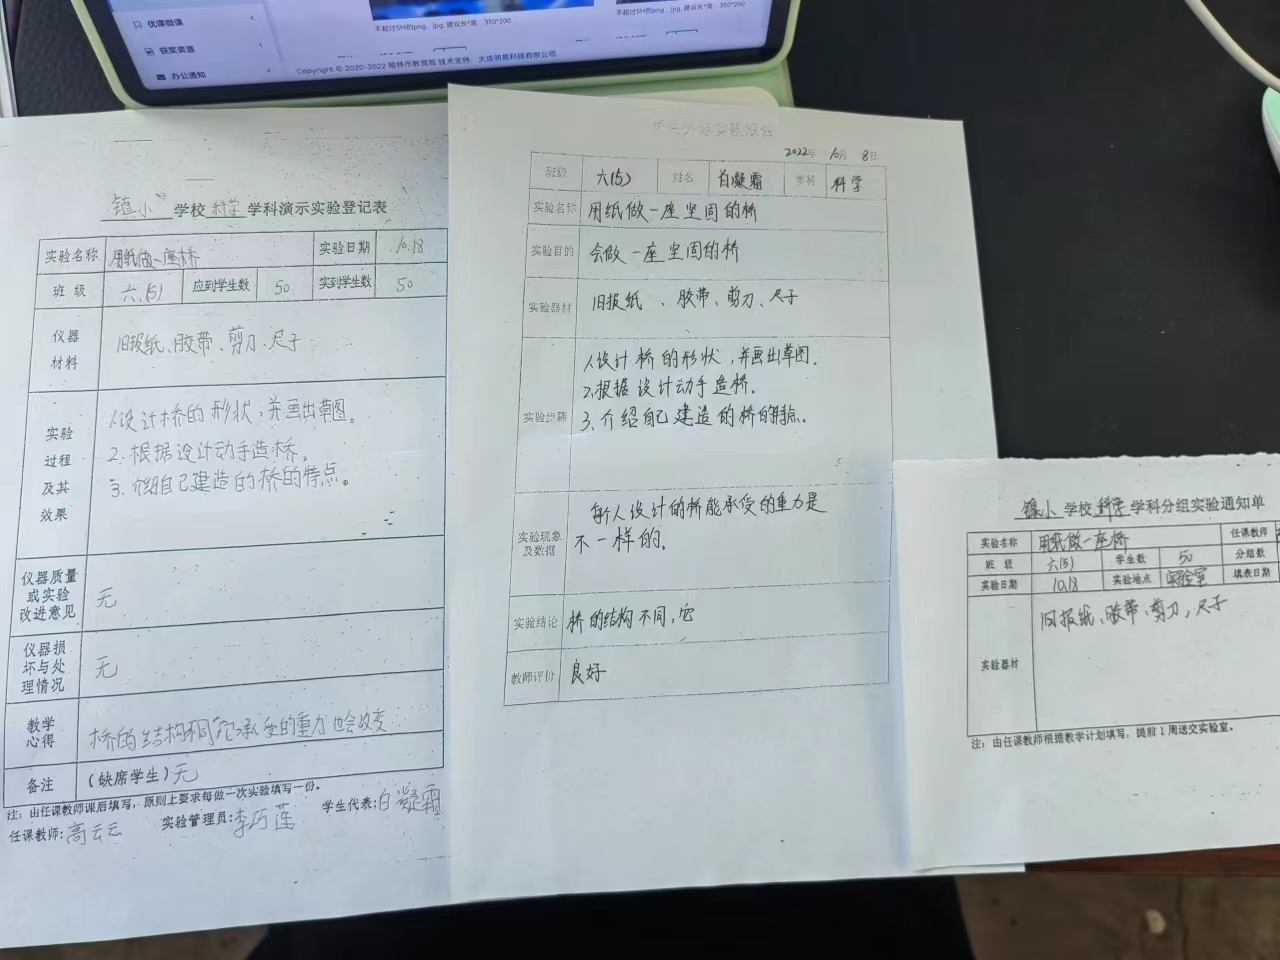 优课微课
获奖资源
办公通知
不超过5M的png、jpg, 建议长*高: 350*200
不超过5M的png、jpg, 建议长*高: 350*200
Copyright © 2020-2022 榆林市教育局 技术支持: 大连明易科技有限公司
镇小 学校 科学 学科演示实验登记表
实验名称 用纸做一座桥 实验日期 10.18
班 级 六(5) 应到学生数 50 实到学生数 50
仪器材料 旧报纸、胶带、剪刀、尺子
实验过程及其效果
1.设计桥的形状,并画出草图。
2.根据设计动手造桥。
3.介绍自己建造的桥的特点。
仪器质量或实验改进意见 无
仪器损坏与处理情况 无
教学心得 桥的结构不同它承受的重力也会改变
备注 (缺席学生)无
注: 由任课教师课后填写, 原则上要求每做一次实验填写一份。
任课教师: 高云云 实验管理员: 李巧莲 学生代表: 白凝霜
2022年 10月 8日
班级 六(5) 姓名 白凝霜 学科 科学
实验名称 用纸做一座坚固的桥
实验目的 会做一座坚固的桥
实验器材 旧报纸、胶带、剪刀、尺子
实验步骤
1.设计桥的形状,并画出草图.
2.根据设计动手造桥.
3.介绍自己建造的桥的特点.
实验现象及数据 每人设计的桥能承受的重力是
不一样的.
实验结论 桥的结构不同,它
教师评价 良好
镇小 学校 科学 学科分组实验通知单
实验名称 用纸做一座桥 任课教师
班 级 六(5) 学生数 50 分组数
实验日期 10.18 实验地点 实验室 填表日期
实验器材 旧报纸、胶带、剪刀、尺子
注: 由任课教师根据教学计划填写, 提前1周送交实验室。